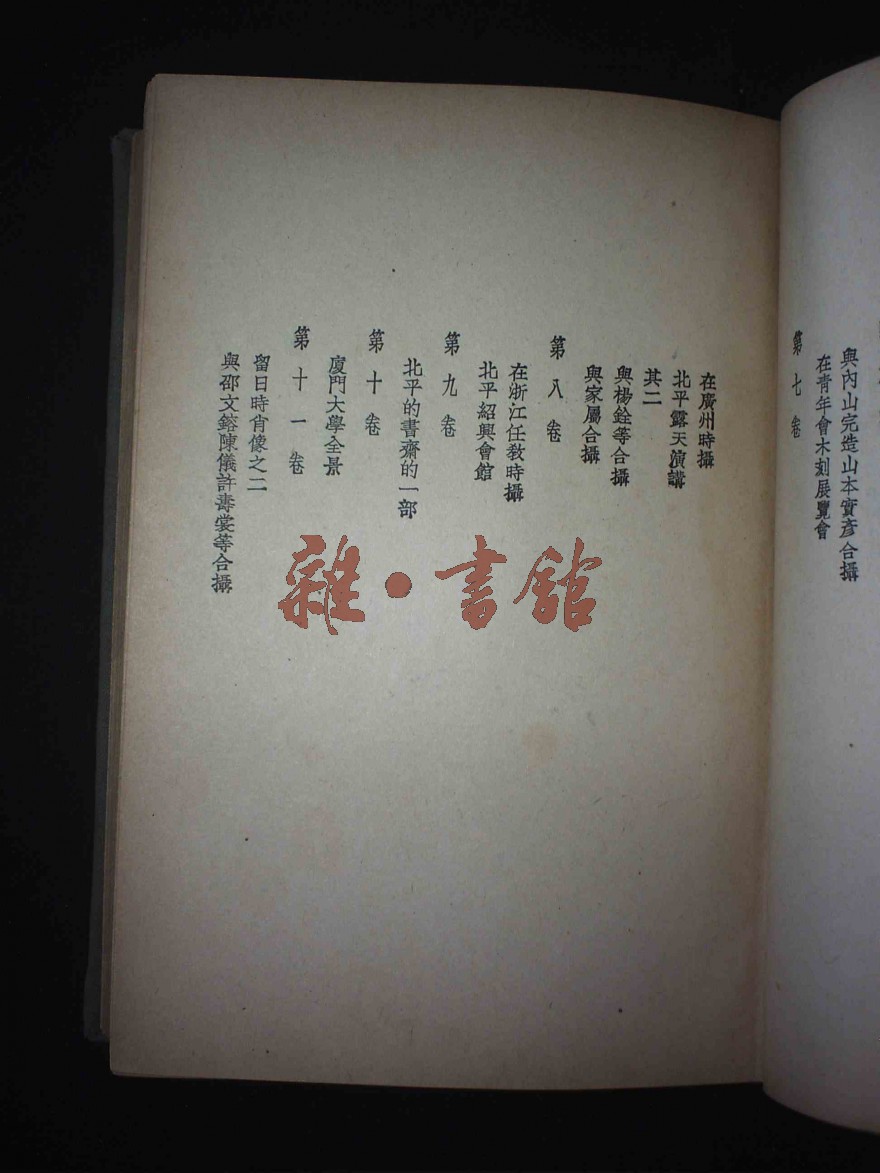 與內山完造山本實彥合攝
在青年會木刻展覽會
第七卷
在廣州時攝
北平露天演講
其二
與楊銓等合攝
與家屬合攝
第八卷
在浙江任教時攝
北平紹興會館
第九卷
北平的書齋的一部
第十卷
廈門大學全景
第十一卷
留日時肖像之二
與邵文鎔陳儀許壽裳等合攝
雜·書館